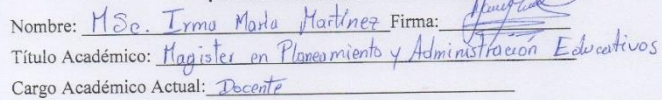 Nombre: MSc. Irma María Martínez Firma:
Título Académico: Magister en Planeamiento y Administración Educativos
Cargo Académico Actual: Docente